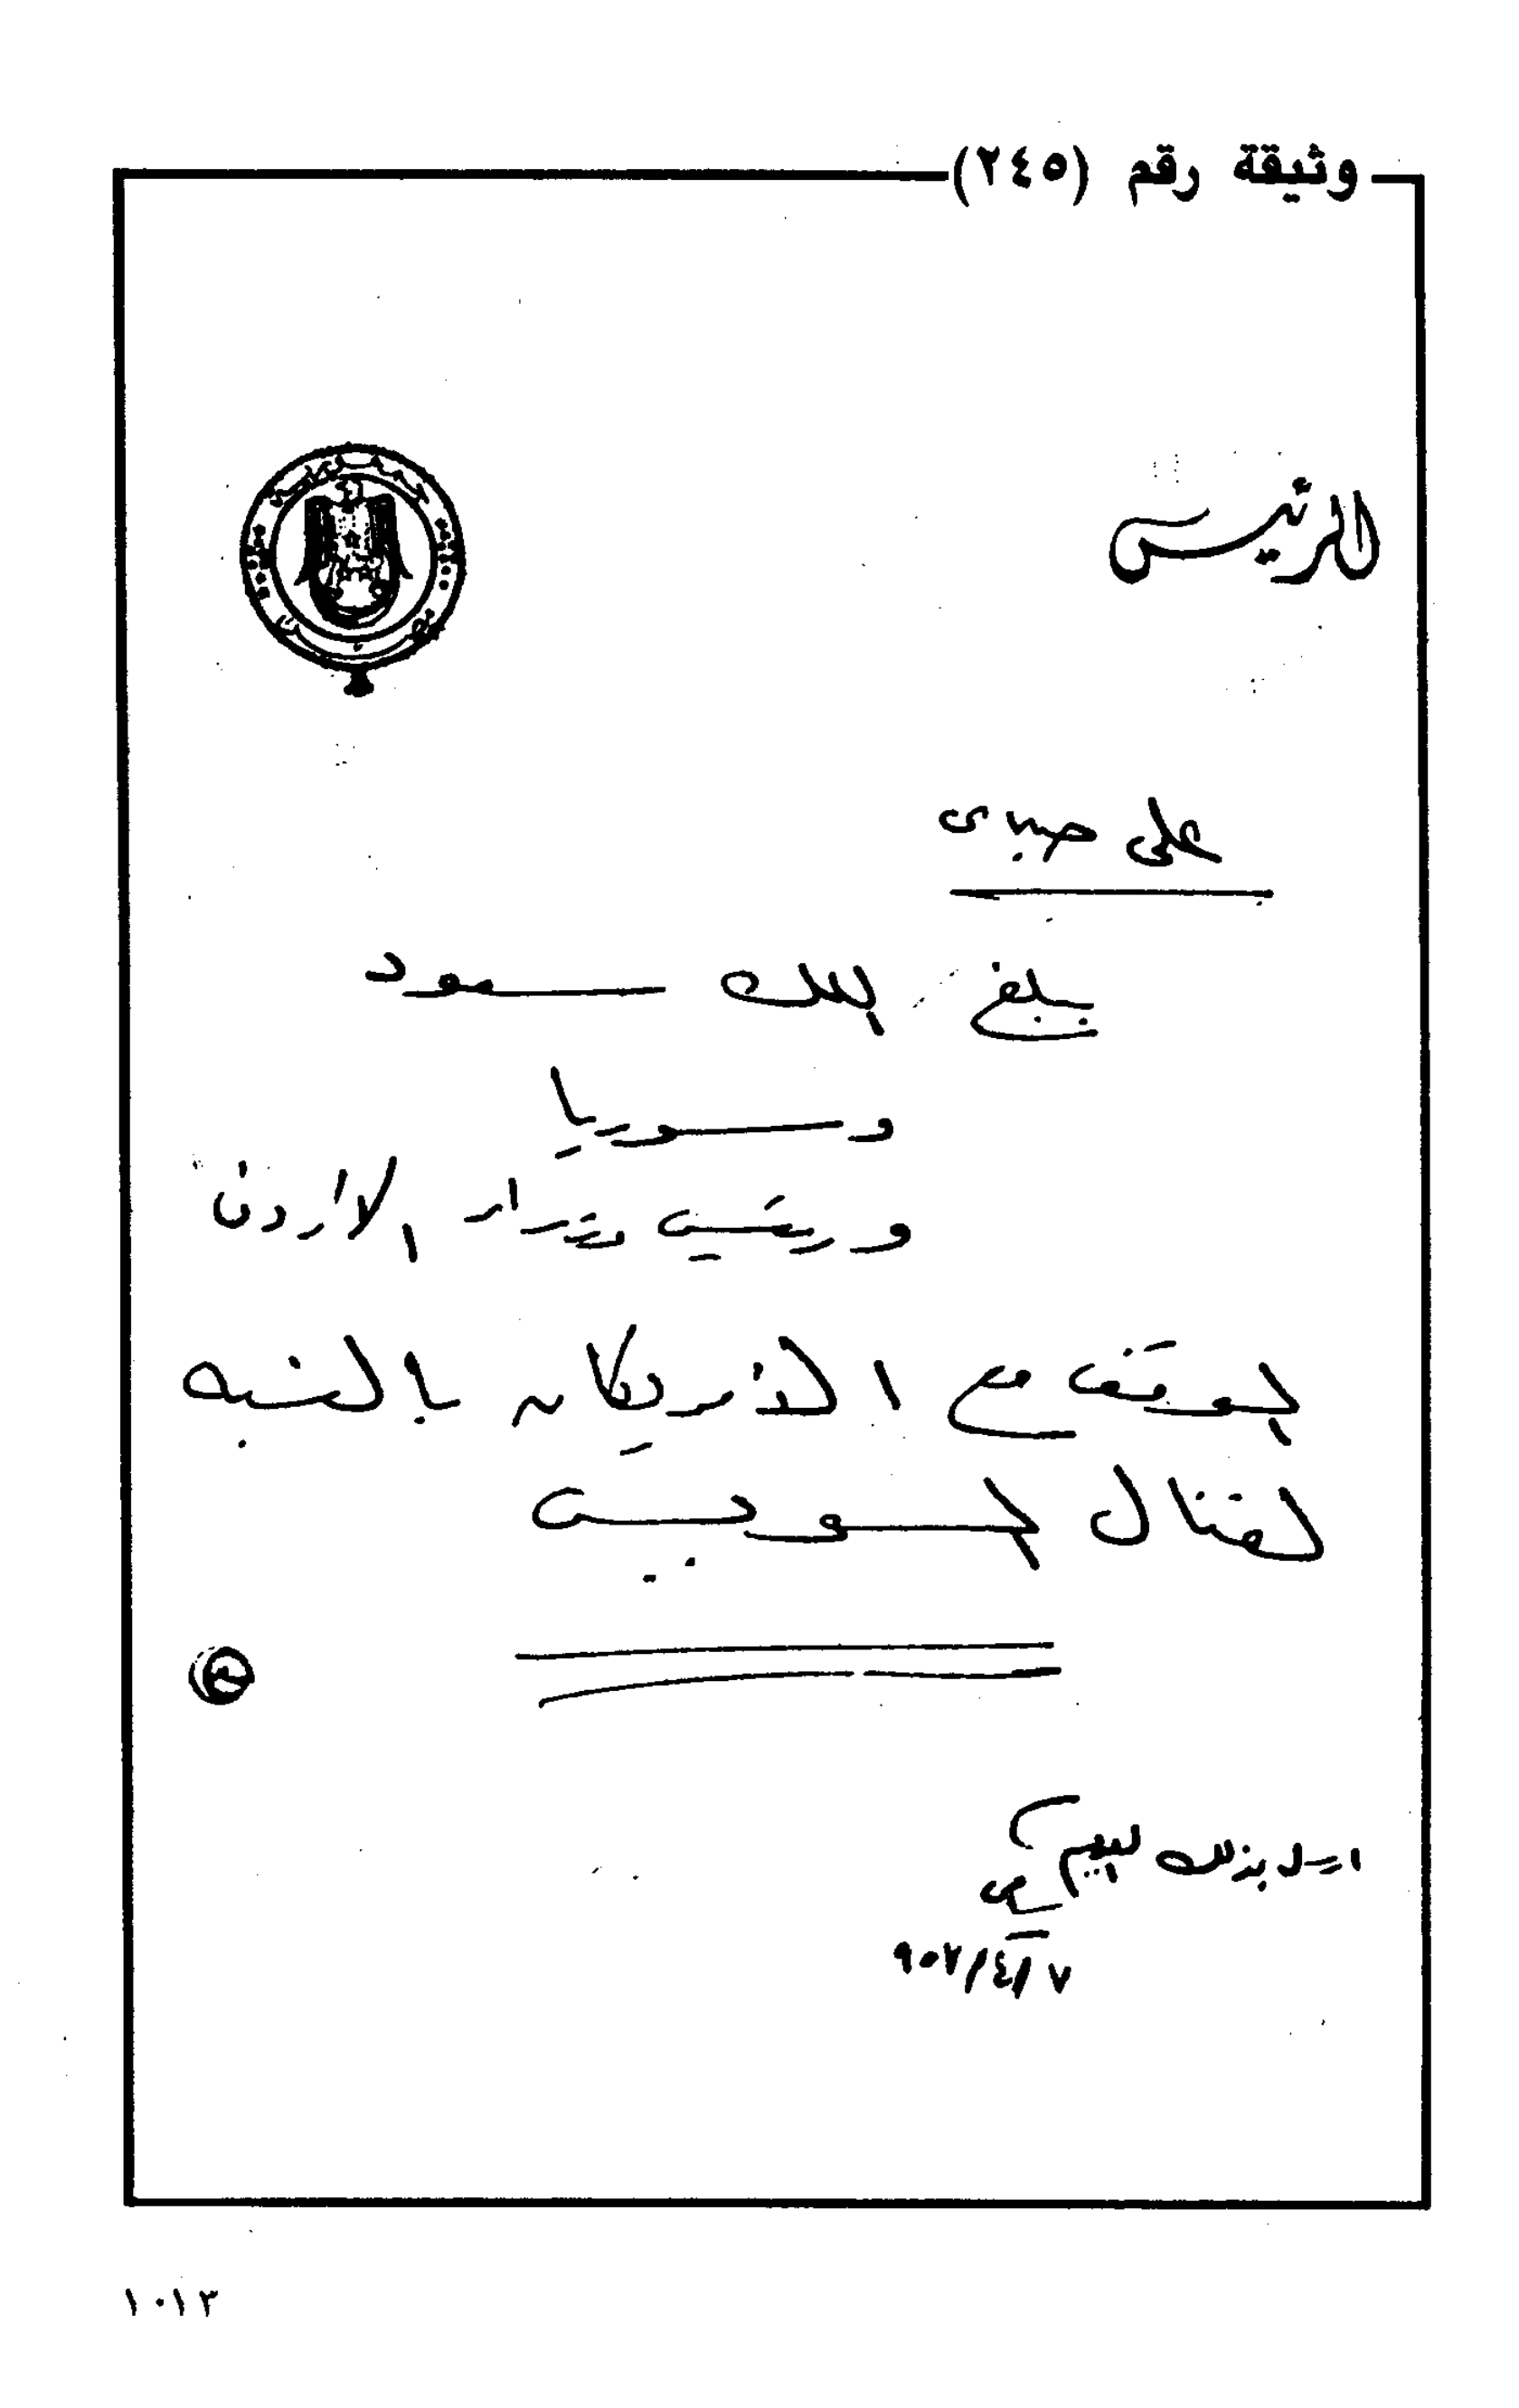 وثيقة رقم (٢٤٥)
الرئيس
على صبرى
يبلغ الملك سعود
وسوريا
ورئيس وزراء الأردن
الموقف مع الأمريكان بالنسبه
لقنال السويس
ارسل بذلك اليوم
٧/٤/٩٥٧
١٠١٣